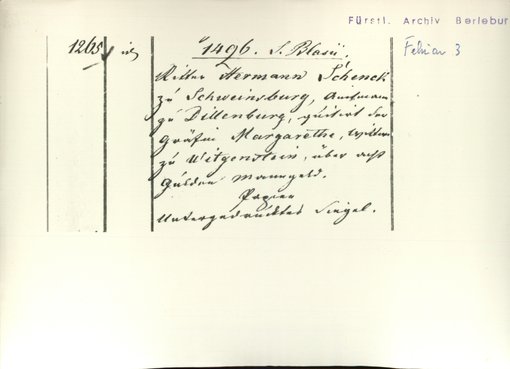 Fürstl. Archiv Berlebur
Februar 3
1265
1496. S. Blasii.
Ritter Hermann Schenck
zu Schweinsburg, Amtmann
zu Dillenburg, quitirt der
Gräfin Margarethe, Wittwe
zu Witgenstein, über acht
Gulden Manngeld.
Papier
Untergedrucktes Siegel.